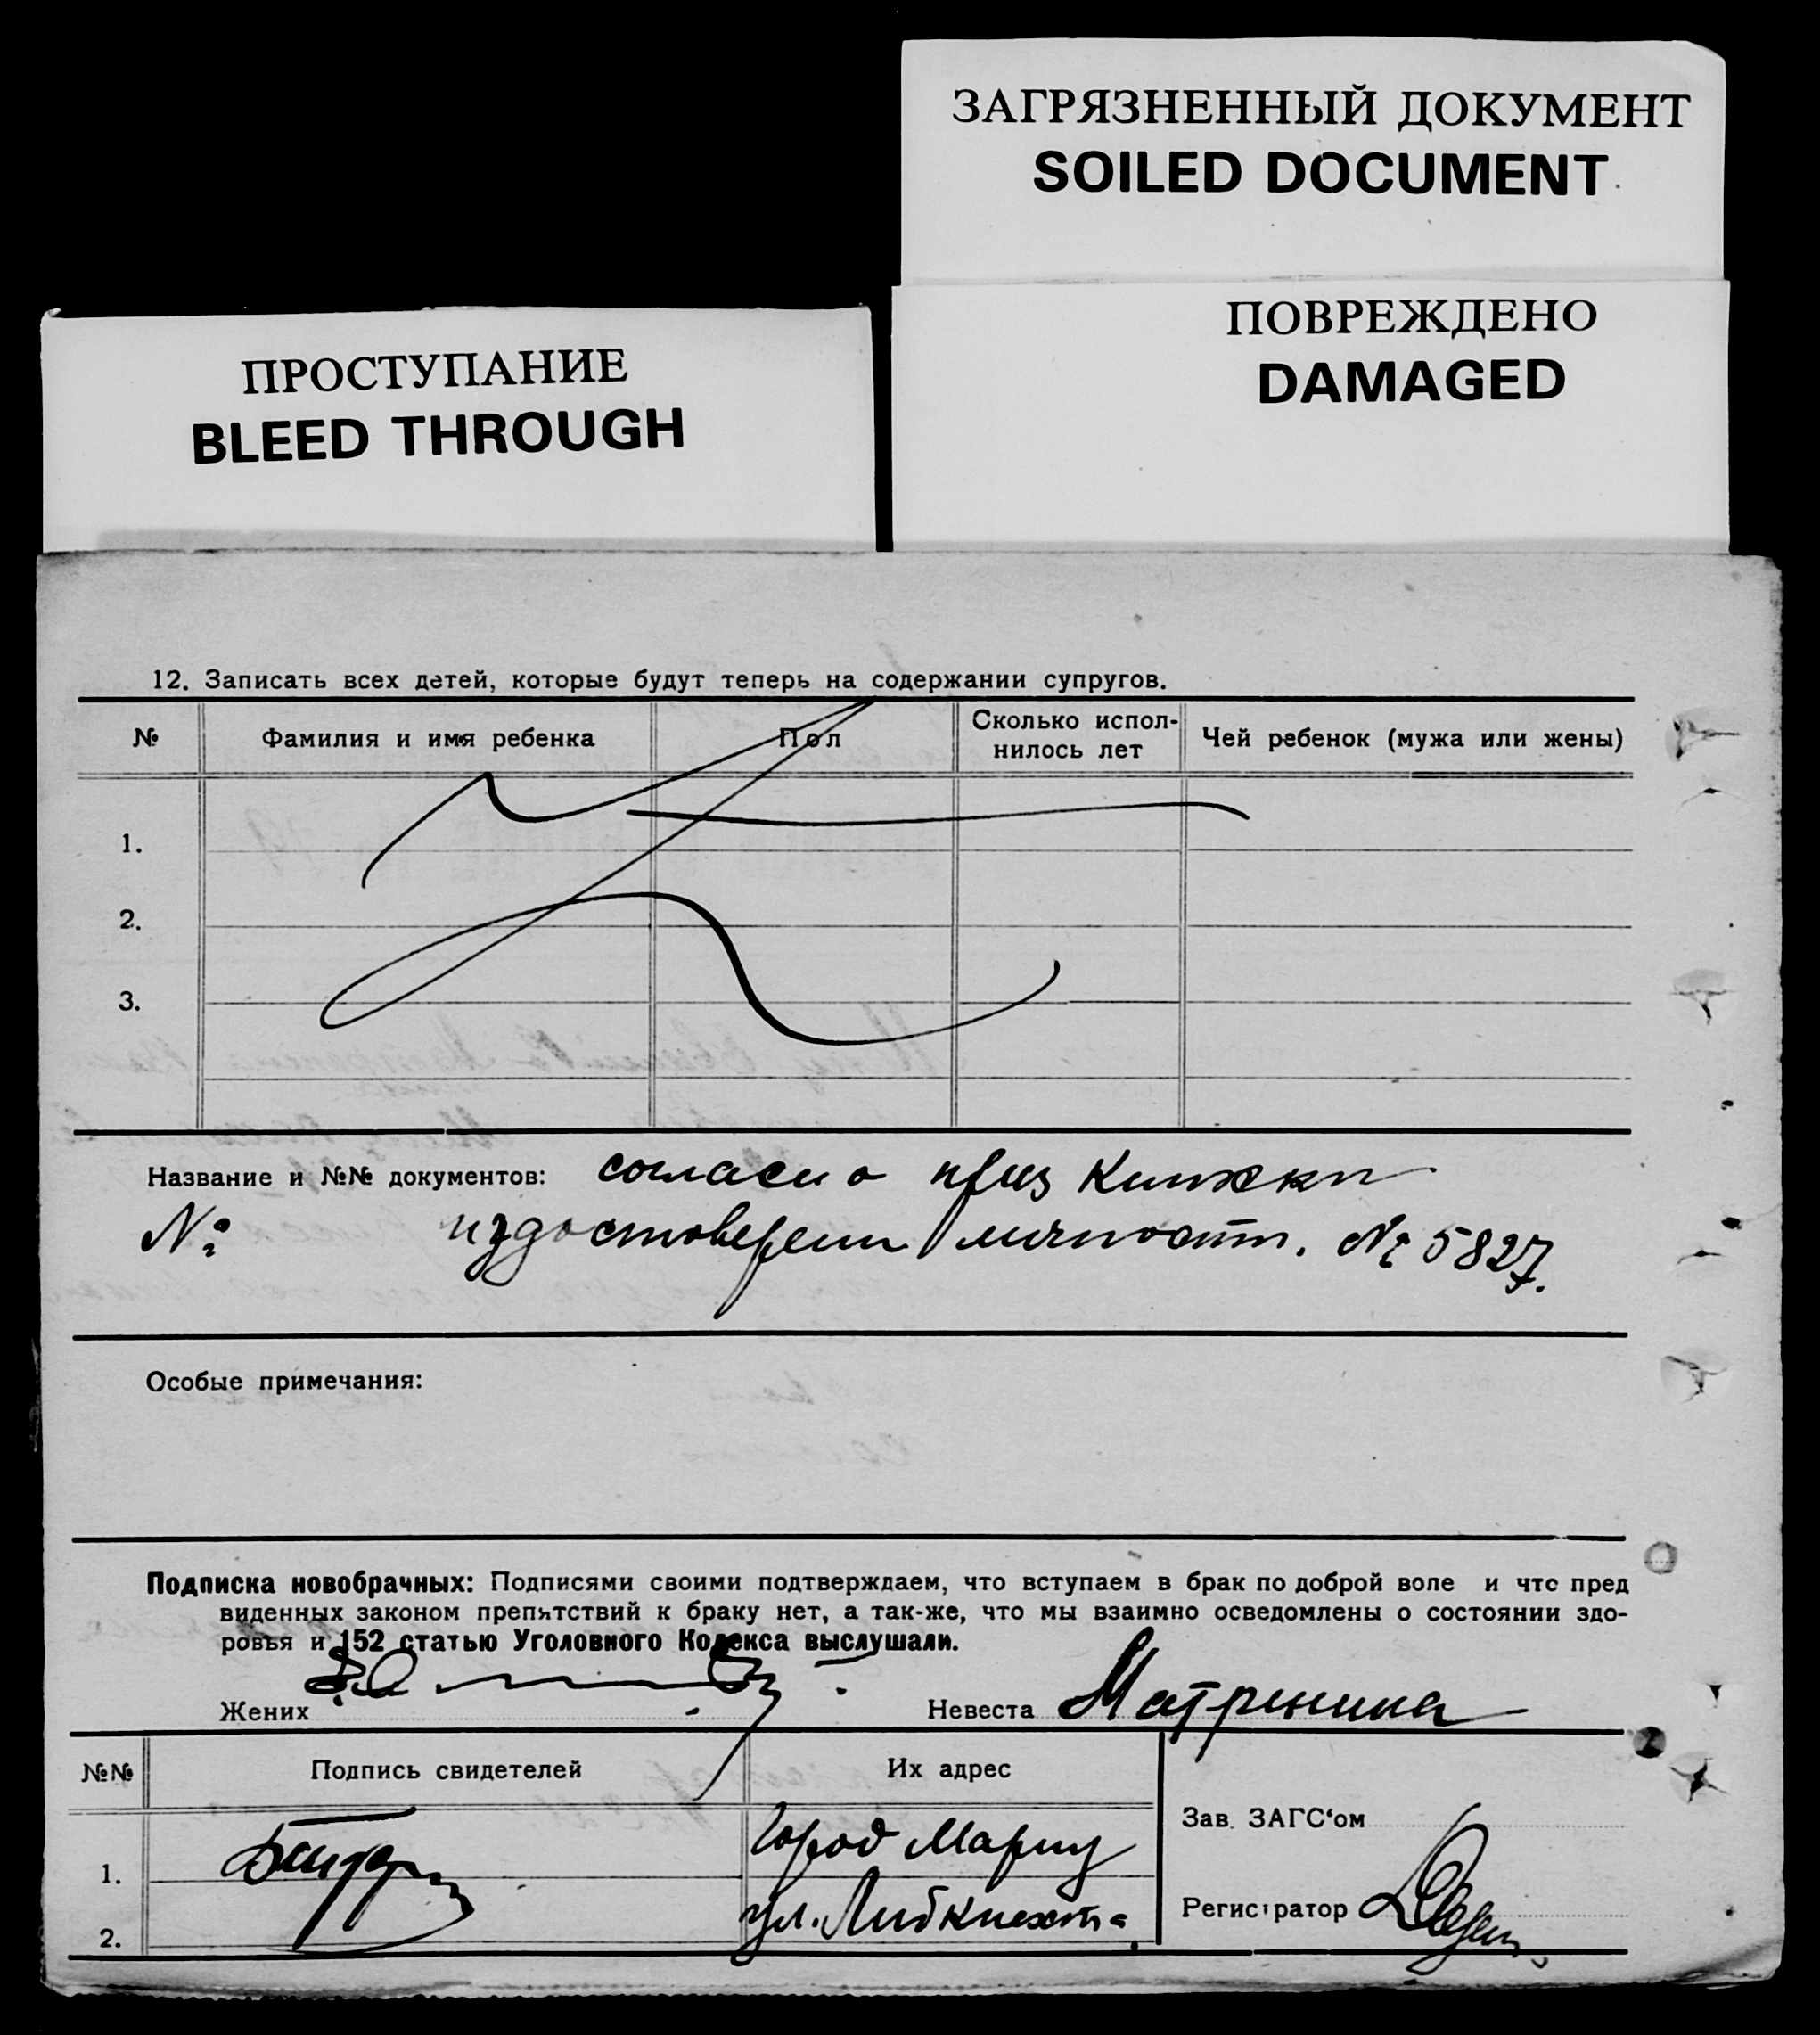 ЗАГРЯЗНЕННЫЙ ДОКУМЕНТ
SOILED DOCUMENT
ПОВРЕЖДЕНО
DAMAGED
ПРОСТУПАНИЕ
BLEED THROUGH
12. Записать всех детей, которые будут теперь на содержании супругов.
№ Фамилия и имя ребенка Пол Сколько испол-
нилось лет Чей ребенок (мужа или жены)
1.
2.
3.
Название и №№ документов: согласно приз книжки
№ удостоверени личност. № 5827.
Особые примечания:
Подписка новобрачных: Подписями своими подтверждаем, что вступаем в брак по доброй воле и что пред
виденных законом препятствий к браку нет, а так-же, что мы взаимно осведомлены о состоянии здо-
ровья и 152 статью Уголовного Кодекса выслушали.
Жених Невеста Матренина
№№ Подпись свидетелей Их адрес
Зав. ЗАГС'ом
1. Город Мариу
Регистратор
2. ул. Либкнехта